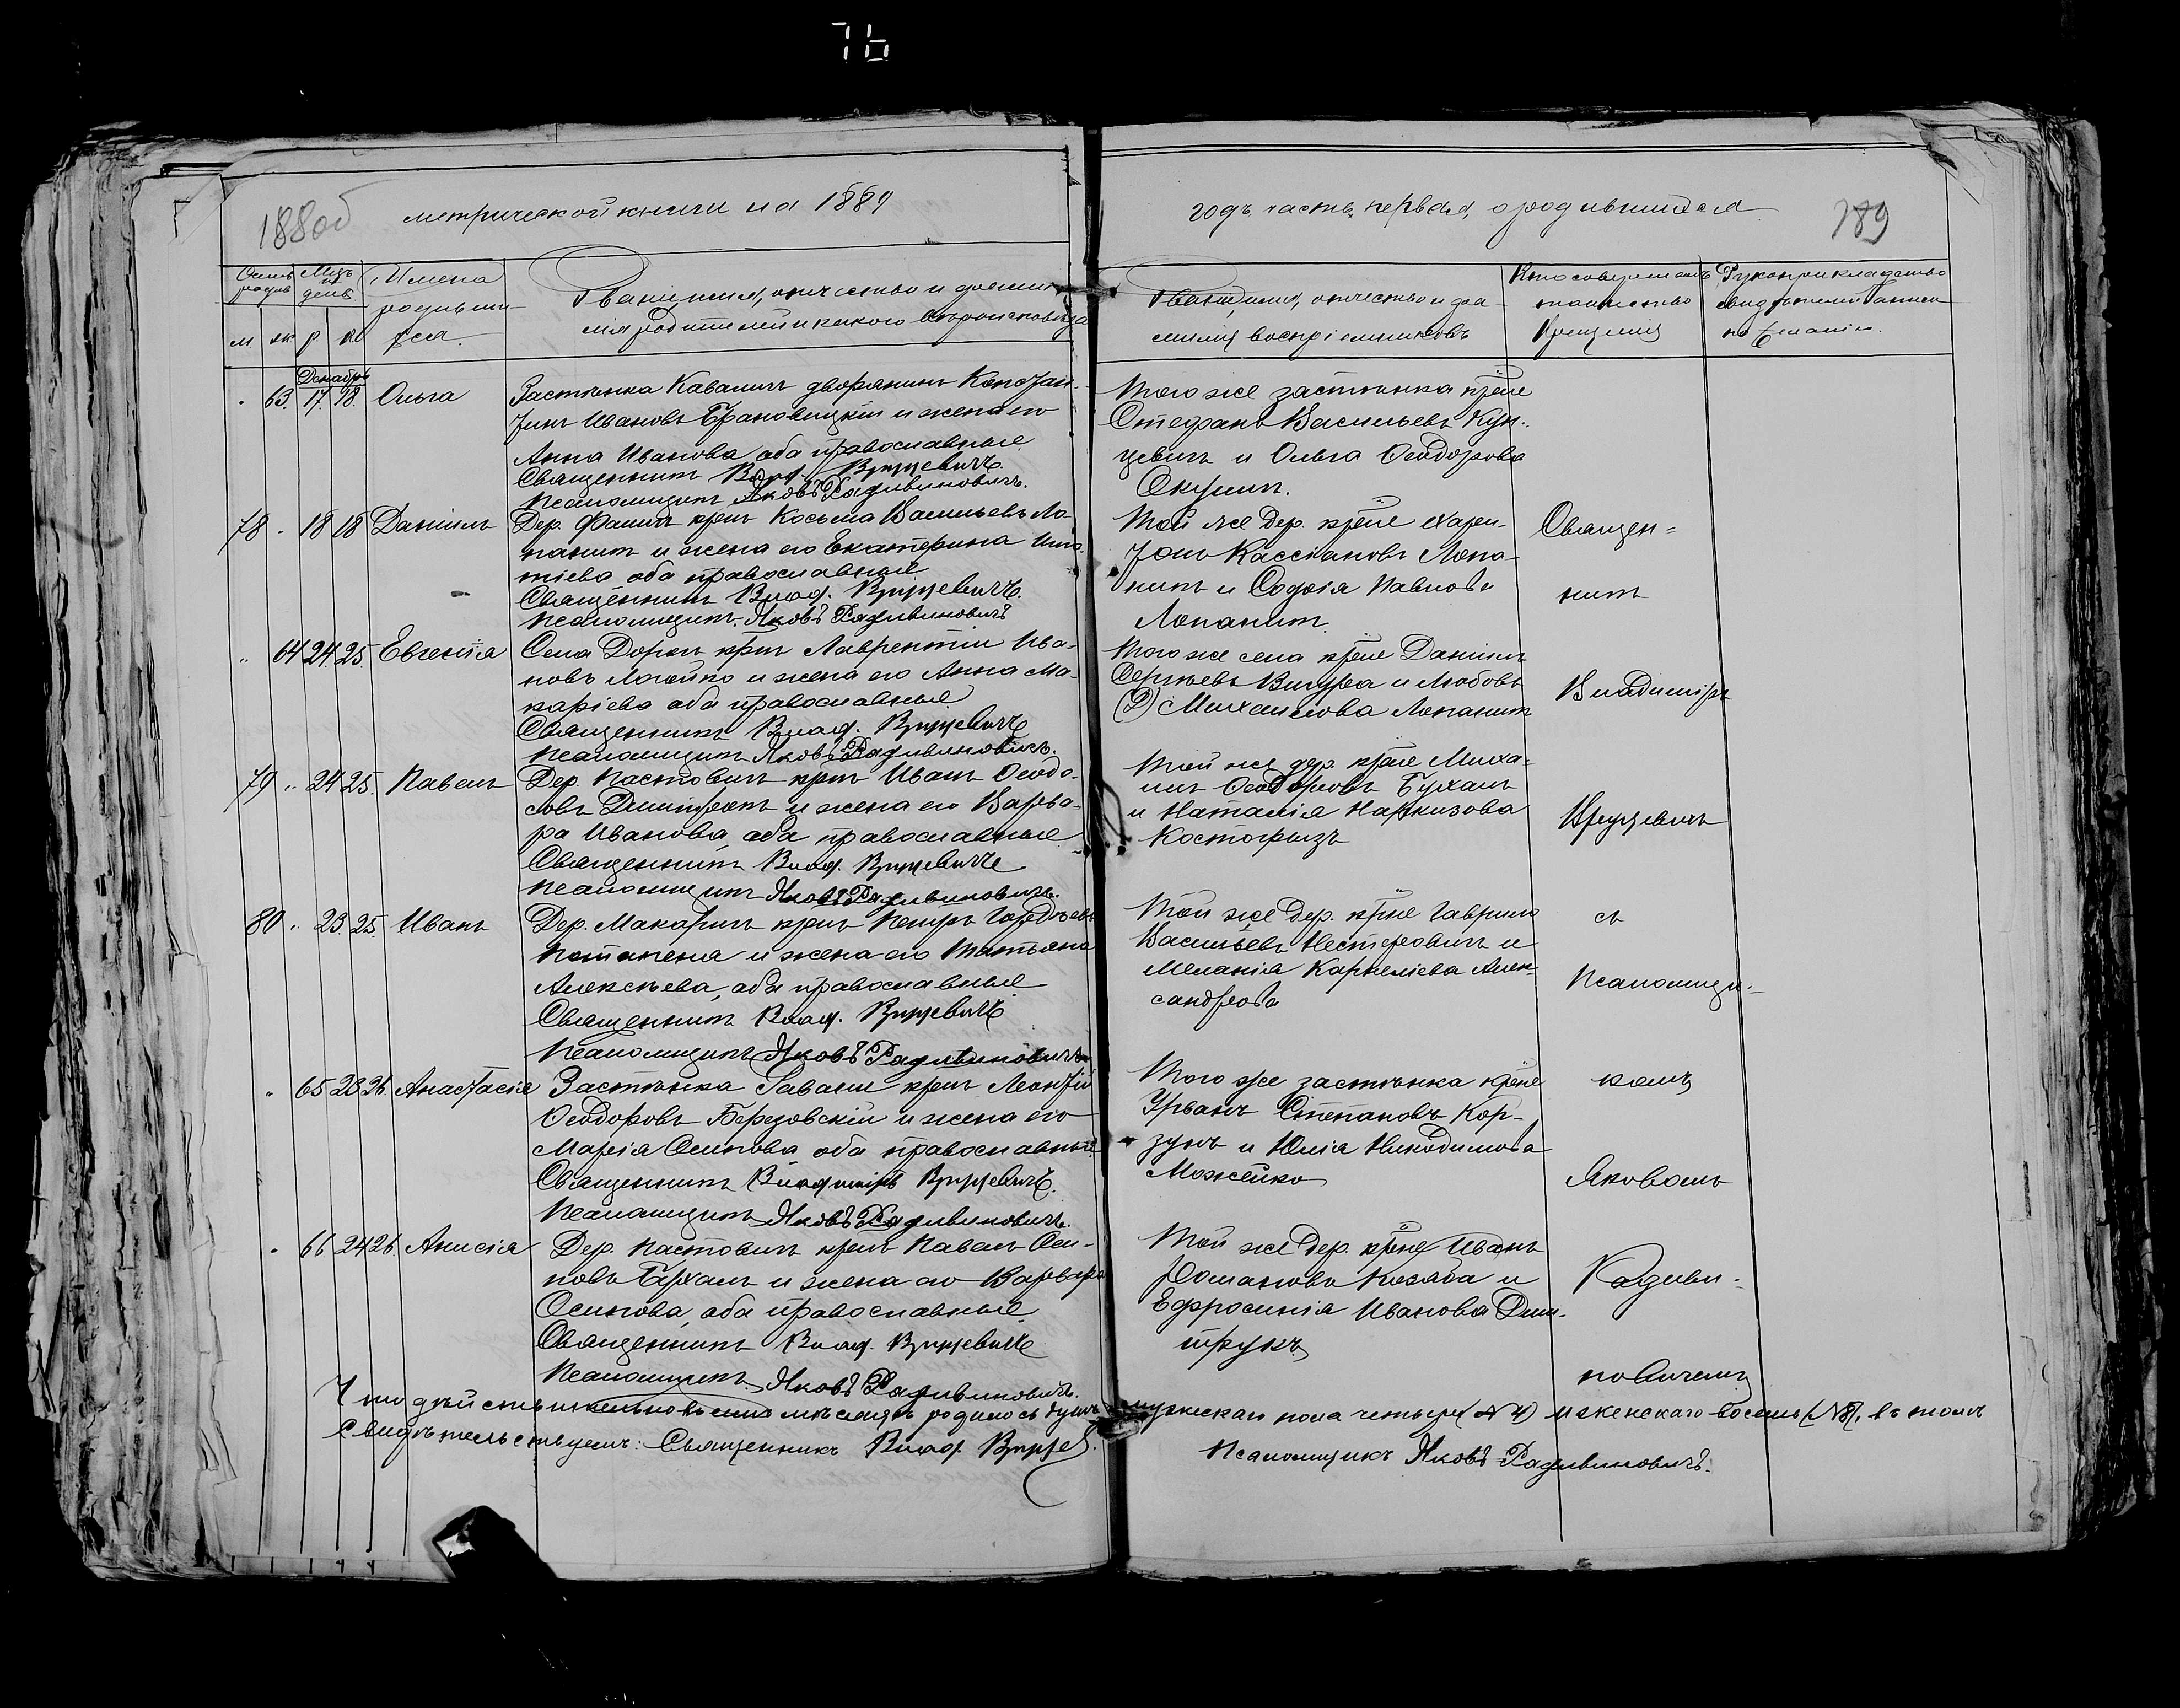 76
188об метрической книги на 1889
годъ часть первая, о родившихся 189
Счетъ родив
Мцъ и день
Имена родивши-
хся
Званіе, имя, отчество и фами-
лія родителей и какого вѣроисповѣда
м ж р к
Званіе, имя, отчество и фа-
милія воспріемниковъ
Кто совершалъ
таинство
крещенія
Рукоприкладство
свидѣтелей записи
по желанію.
Декабрь
63. 17. 18. Ольга
Застѣнка Кавалич дворянинъ Констан-
тинъ Ивановъ Брановицкій и жена его
Анна Иванова оба православные
Священникъ Влад.
Псаломщикъ Яковъ Радивиновичъ.
Того же застѣнка кр̃не
Стефанъ Васильевъ Кун-
цевичъ и Ольга Ѳеодорова
Окулич.
78 - 18 18 Даніилъ
Дер. крнъ Косьма Васильевъ Ло-
панит и жена его Екатерина Игна-
тіева оба православные
Священникъ Влад.
Псаломщикъ Яковъ Радивиновичъ
Той же дер. кр̃не Хари-
тонъ Кассіановъ Лопа-
нит и Софія Павлова
Лопанит.
64 24. 25. Евгенія
Села Доры крнъ Лаврентій Ива-
новъ Логойко и жена его Анна Ма-
каріева оба православные
Священникъ Влад.
Псаломщикъ Яковъ Радивиновичъ.
Того же села кр̃не Даніилъ
Сергѣевъ и Любовь
Михаилова Лопанит
79 " 24 25. Павелъ
Дер. Пастович крнъ Иванъ Ѳеодо-
совъ Дмитрукъ и жена его Варва-
ра Иванова, оба православные
Священникъ Влад.
Псаломщикъ Яковъ Радивиновичъ.
Той же дер. кр̃не Миха-
илъ Ѳеодоровъ Бухалъ
и Наталія Наркизова
Костогрызъ
80 " 23. 25. Иванъ
Дер. Макарич крнъ Петръ Гордѣевъ
Потапеня и жена его Татьяна
Алексѣева, оба православные
Священникъ Влад.
Псаломщикъ Яковъ Радивиновичъ
Той же дер. кр̃не Гавріилъ
Васильевъ Нестерович и
Меланія Карнеліева Алек-
сандрова
65 23 26. Анастасія
Застѣнка крнъ Леонтій
Ѳеодоровъ Березовскій и жена его
Марія Осипова оба православные
Священникъ Владиміръ
Псаломщикъ Яковъ Радивиновичъ.
Того же застѣнка кр̃не
Урванъ Степановъ Кор-
зунъ и Юлія Никодимова
Можейко
66 24 26. Анисія
Дер. Пастович крнъ Павелъ Оси-
повъ Бухалъ и жена его Варвара
Осипова, оба православные
Священникъ Влад.
Псаломщикъ Яковъ Радивиновичъ.
Той же дер. кр̃не Иванъ
Романовъ Козяба и
Ефросинія Иванова Дми-
трукъ
Священ-
никъ
Владиміръ
съ
Псаломщи-
комъ
Яковомъ
Радиви-
новичемъ
Что дѣйствительно въ семъ мѣсяцѣ родилось душъ мужескаго пола четыре (№4) и женскаго восемь (№8), въ томъ
свидѣтельствуемъ: Священникъ Влад. Псаломщикъ Яковъ Радивиновичъ.